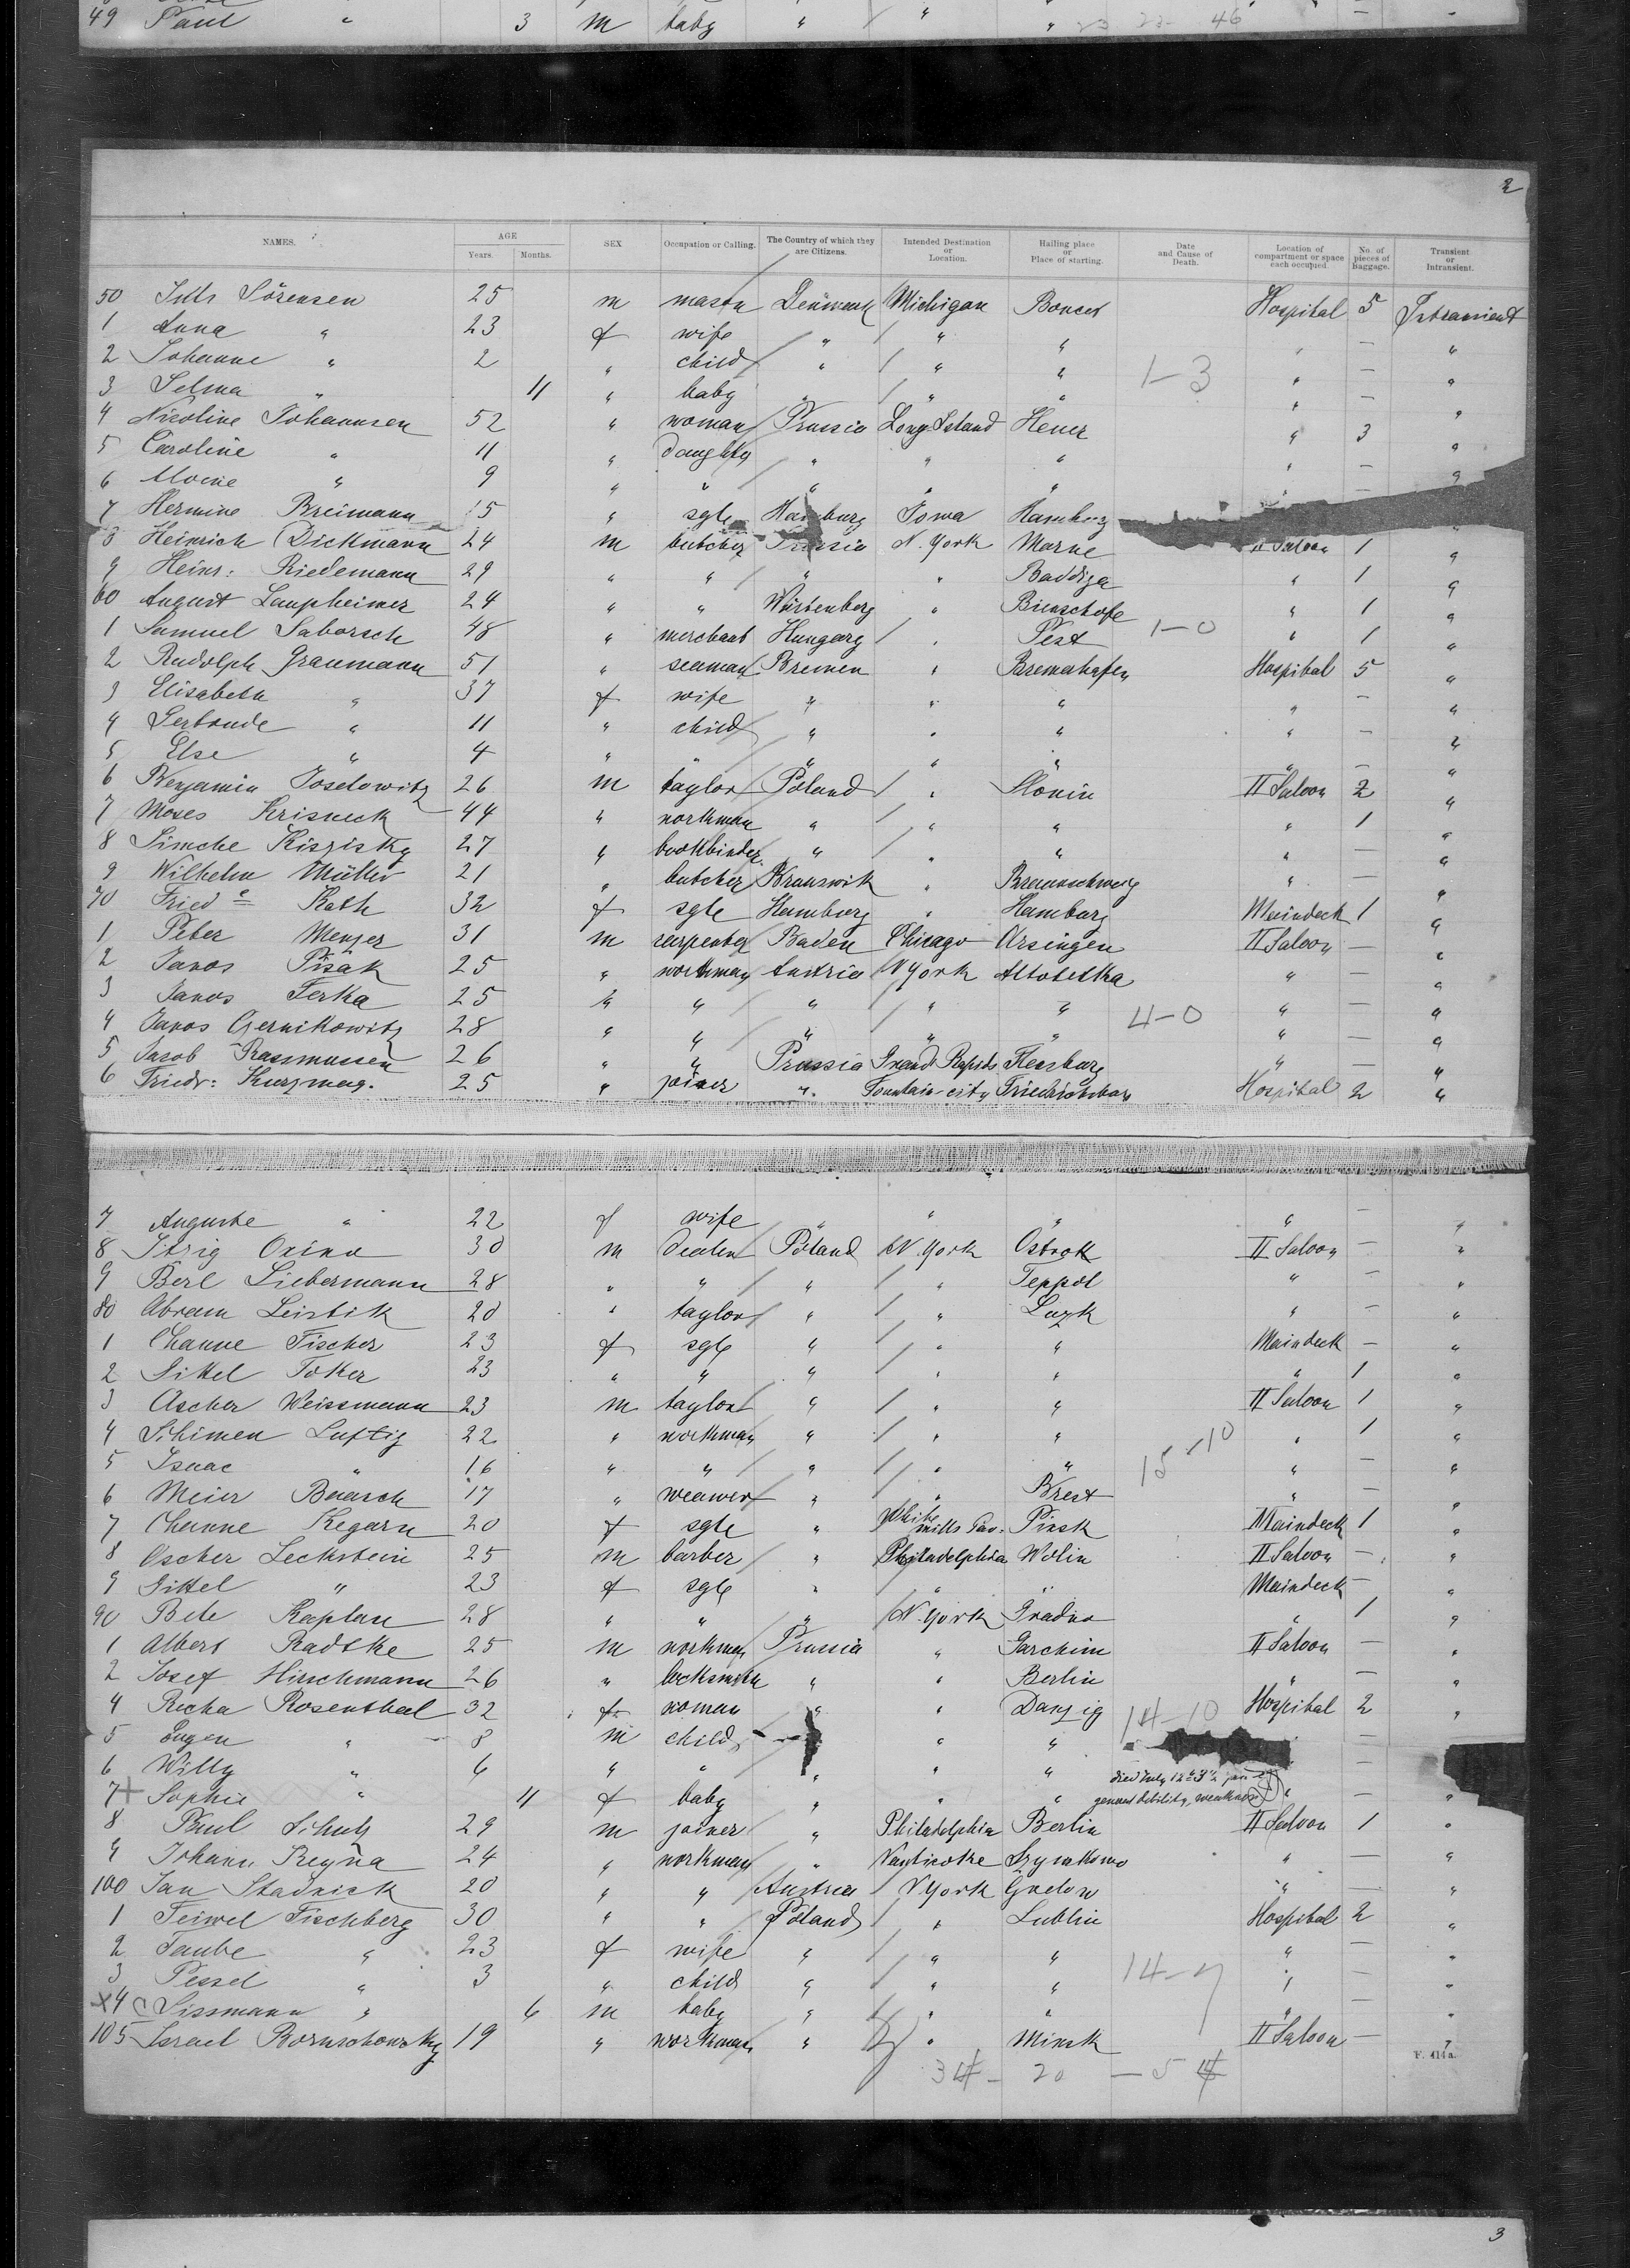 49 Paul " 3 m baby " / " " 23 23- 46 —
2
NAMES. AGE SEX Occupation or Calling. The Country of which they are Citizens. Intended Destination or Location. Hailing place or Place of starting. Date and Cause of Death. Location of compartment or space each occupied. No. of pieces of Baggage. Transient or Intransient.
Years. Months.
50 Sörensen 25 m mason Denmark Michigan Hospital 5 Intransient
1 Anna " 23 f wife " / " " " — "
2 Johanne " 2 " child " / " " 1-3 " — "
3 Selma " 11 " baby " / " " " — "
4 Nicoline Johannsen 52 " woman Prussia Long-Island " 3 "
5 Caroline " 11 " daughter " " " " — "
6 " 9 " " " " " " — "
7 Hermine Breimann 15 " sgle Hamburg Iowa Hamburg
8 Heinrich Dickmann 24 m butcher Prussia N. York Marne II Saloon 1 "
9 Heinr: Riedemann 29 " " " " " 1 "
60 August Laupheimer 24 " " " " 1 "
1 Samuel Saborsch 48 " merchant Hungary / " Pest 1-0 " 1 "
2 Rudolph Graumann 51 " seaman Bremen " Bremerhafen Hospital 5 "
3 Elisabeth " 37 f wife " " " " — "
4 Gertrude " 11 " child " " " " — "
5 Else " 4 " " " " " " — "
6 Benjamin Joselowitz 26 m taylor Poland / " Slonin II Saloon 2 "
7 Moses Krisneck 44 " workman " / " " " 1 "
8 Simche 27 " bookbinder " / " " " — "
9 Wilhelm Müller 21 " butcher " Braunschweig " — "
70 Fried e Kath 32 f sgle Hamburg " Hamburg Maindeck 1 "
1 Peter Menzer 31 m carpenter Baden Chicago II Saloon — "
2 Janos Pisak 25 " workman Austria N York " — "
3 Janos Ferka 25 " " " / " " " — "
4 Janos Gernikowitz 28 " " " " " 4-0 " — "
5 Jacob Rassmussen 26 " " Prussia Grand Rapids Flensburg " — "
6 Friedr: 25 " joiner " Fountain-city Hospital 2 "
7 Auguste " 22 f wife " " " " — "
8 Itzig 30 m Poland N. York Ostrok II Saloon — "
9 Berl Liebermann 28 " " " / " Teppol " — "
80 Abram Leistik 20 " taylor " / " Luzk " — "
1 Channe Fischer 23 f sgle " / " " Maindeck — "
2 Toker 23 " " " / " " " 1 "
3 Ascher Weissmann 23 m taylor " / " " II Saloon 1 "
4 Schimen Luftig 22 " workman " / " " " 1 "
5 Isaac " 16 " " " / " " 15-10 " — "
6 Meier Baasch 17 " weawer " " Brest " — "
7 Channe 20 f sgle " White mills Pinsk Maindeck 1 "
8 Oscher Leckstein 25 m barber " Philadelphia Wolin II Saloon — "
9 Gittel " 23 f sgle " " " Maindeck — "
90 Kaplan 28 " " " N. York " 1 "
1 Albert Radtke 25 m workman Prussia " Garchim II Saloon — "
2 Josef Hirschmann 26 " locksmith " " Berlin " — "
4 Recha Rosenthal 32 f woman " " Danzig 14-10 Hospital 2 "
5 Eugen " 8 m child " " —
6 Willy " 6 " " " " " —
died July
7 + Sophie " 11 f baby " " " general debility, weakness " "
8 Paul Schulz 29 m joiner " Philadelphia Berlin II Saloon 1 "
9 Johann 24 " workman " Nanticoke " — "
100 Jan Stadnick 20 " " Austria / N York " — "
1 Feiwel Fischberg 30 " " Poland / " Lublin Hospital 2 "
2 Taube " 23 f wife " / " " " — "
3 Pessel " 3 " child " / " " 14-7 " — "
x4 Sissmann " 6 m baby " " " " — "
105 Israel 19 " workman " " Minsk II Saloon — "
F. 414a.
34 - 20 - 54
3